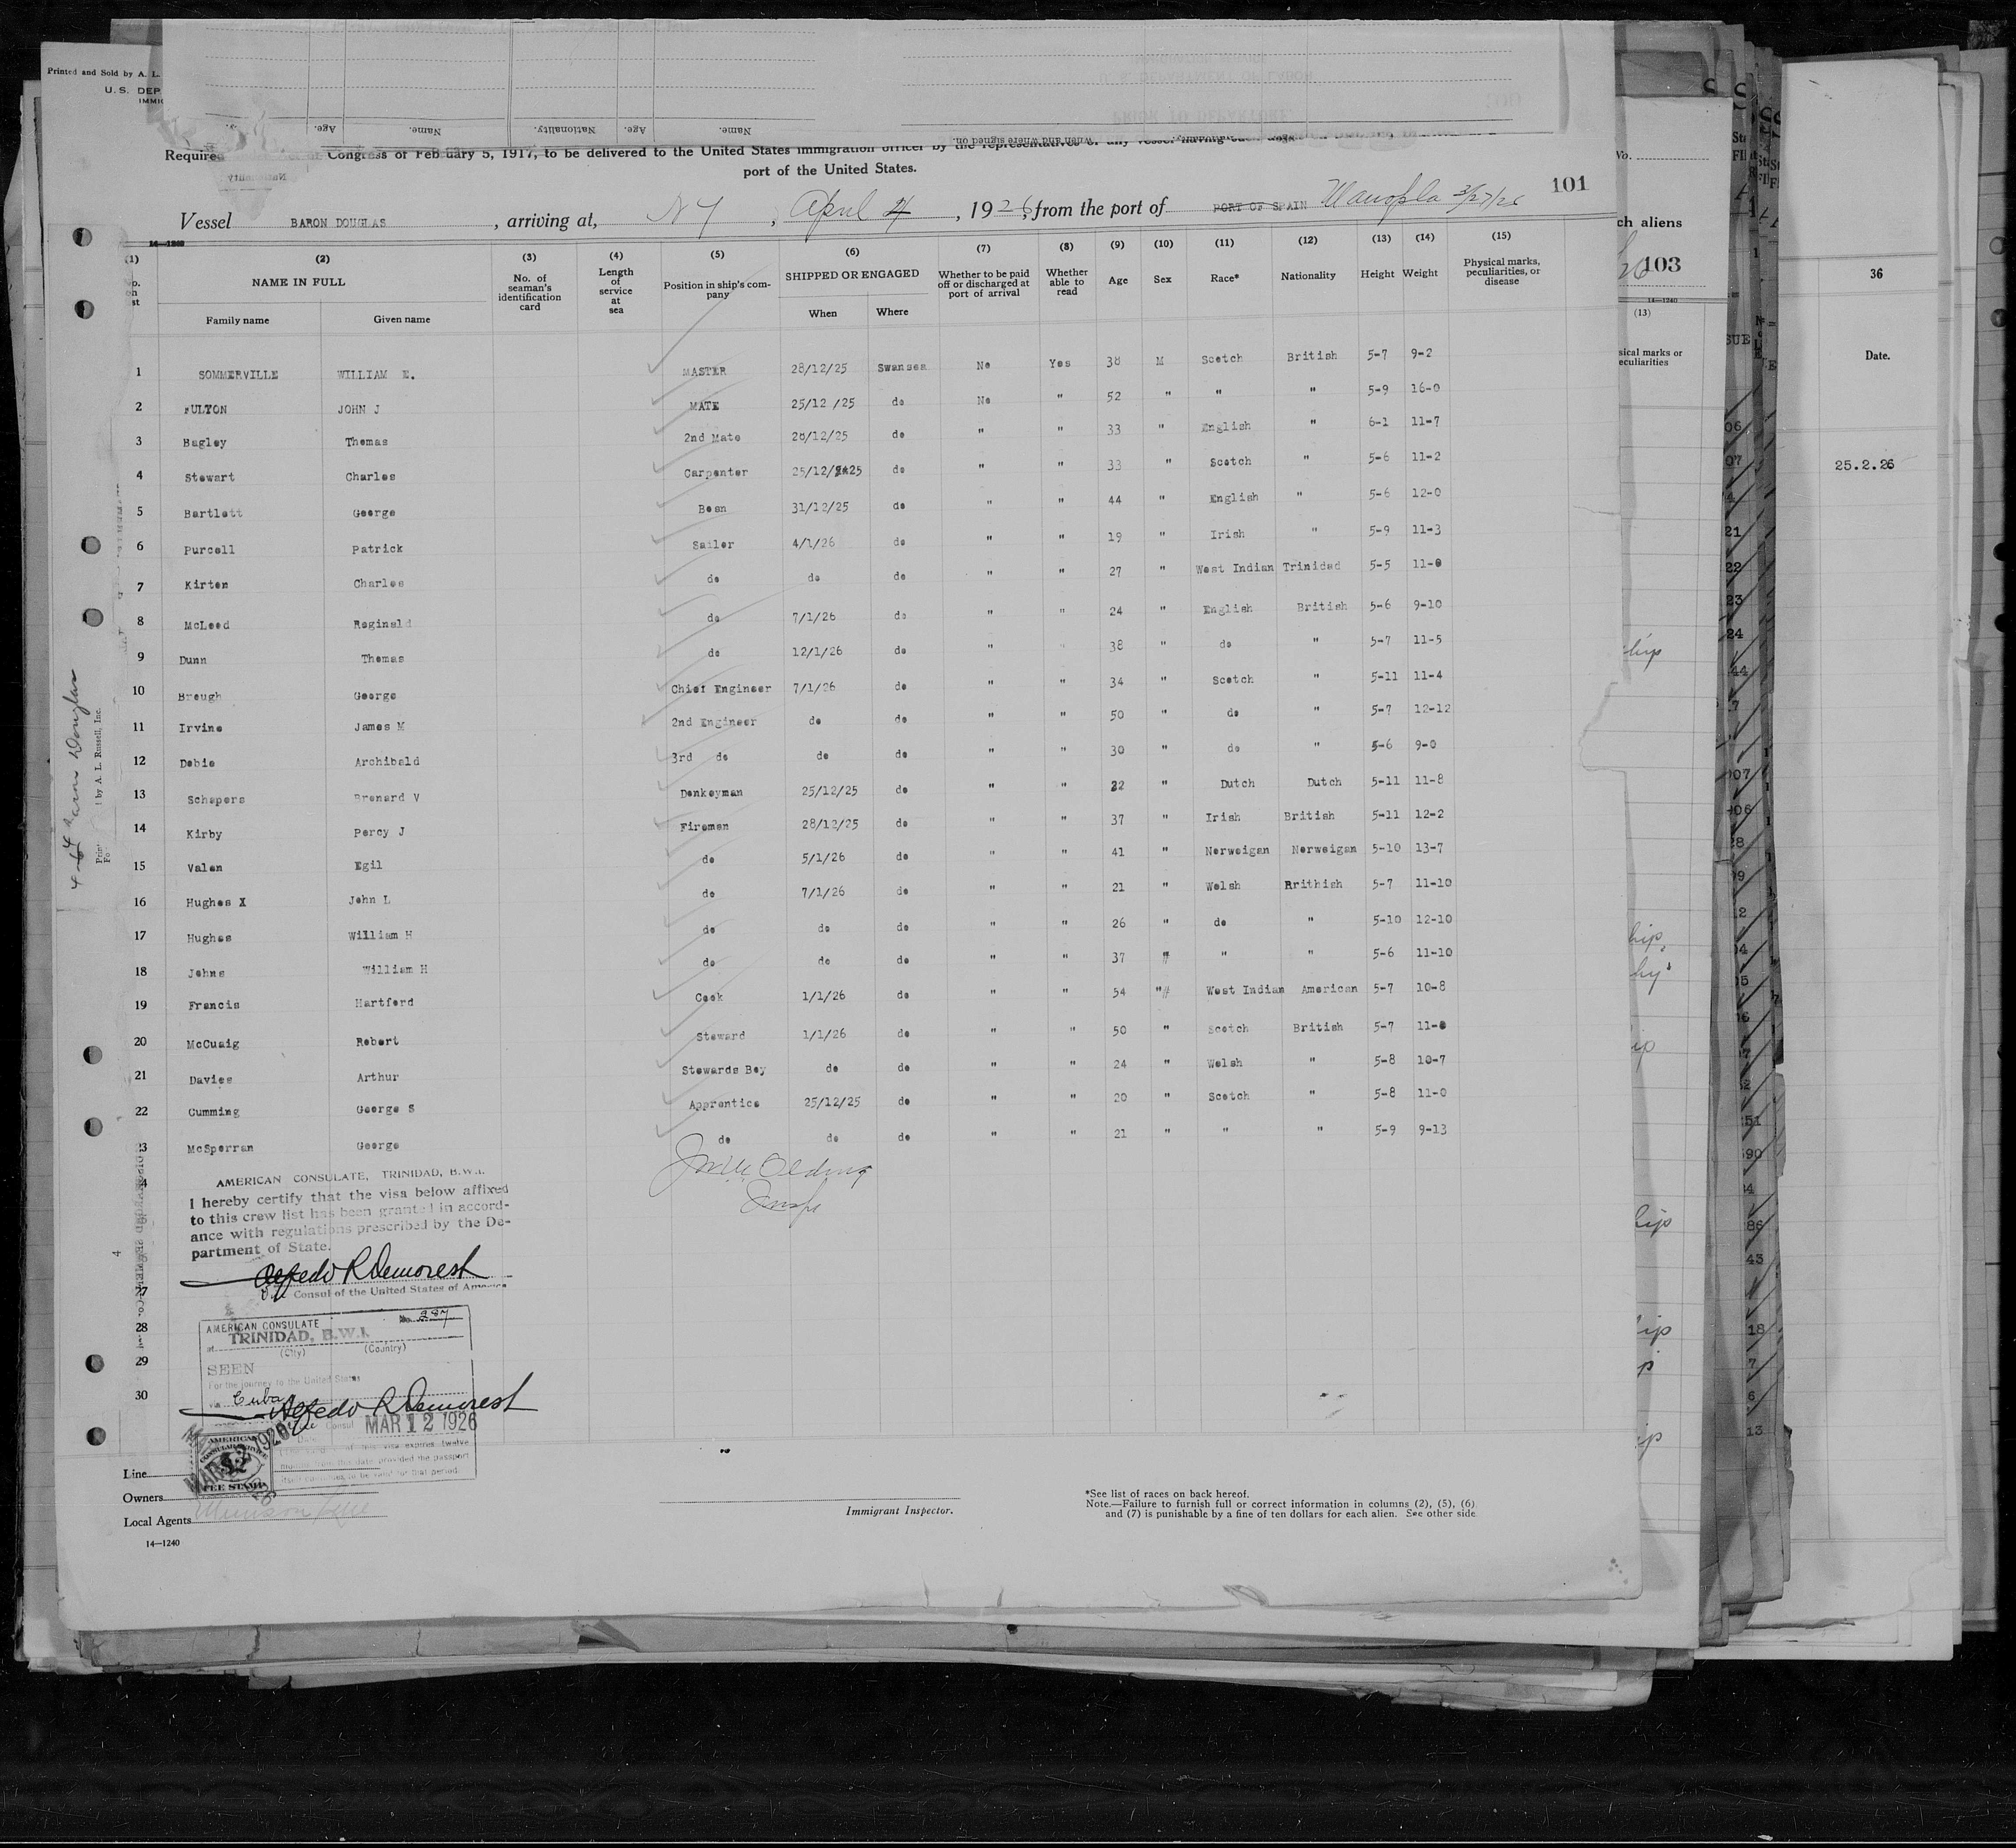 Printed and Sold by A. L.
U. S. DEP
IMMIG
Name. Age. Nationality. Name. Age.
When and where signed on.
Required Congress of February 5, 1917, to be delivered to the United States immigration officer by the representatives of any vessel having
port of the United States.
101
Vessel BARON DOUGLAS, arriving at, N Y, April 4, 1926, from the port of PORT OF SPAIN 3/27/26
14—1240
(1) (2) (3) (4) (5) (6) (7) (8) (9) (10) (11) (12) (13) (14) (15)
NAME IN FULL No. of seaman's identification card Length of service at sea Position in ship's company SHIPPED OR ENGAGED Whether to be paid off or discharged at port of arrival Whether able to read Age Sex Race* Nationality Height Weight Physical marks, peculiarities, or disease
Family name Given name When Where
1 SOMMERVILLE WILLIAM E. MASTER 28/12/25 Swansea No Yes 38 M Scotch British 5-7 9-2
2 FULTON JOHN J MATE 25/12/25 do No " 52 " " " 5-9 16-0
3 Bagley Thomas 2nd Mate 28/12/25 do " " 33 " English " 6-1 11-7
4 Stewart Charles Carpenter 25/12/25 do " " 33 " Scotch " 5-6 11-2
5 Bartlett George Bosn 31/12/25 do " " 44 " English " 5-6 12-0
6 Purcell Patrick Sailor 4/1/26 do " " 19 " Irish " 5-9 11-3
7 Kirton Charles do do do " " 27 " West Indian Trinidad 5-5 11-0
8 McLeod Reginald do 7/1/26 do " " 24 " English British 5-6 9-10
9 Dunn Thomas do 12/1/26 do " " 38 " do " 5-7 11-5
10 Brough George Chief Engineer 7/1/26 do " " 34 " Scotch " 5-11 11-4
11 Irvine James M 2nd Engineer do do " " 50 " do " 5-7 12-12
12 Dobie Archibald 3rd do do do " " 30 " do " 5-6 9-0
13 Schepers Brenard V Donkeyman 25/12/25 do " " 22 " Dutch Dutch 5-11 11-8
14 Kirby Percy J Fireman 28/12/25 do " " 37 " Irish British 5-11 12-2
15 Valen Egil do 5/1/26 do " " 41 " Norweigan Norweigan 5-10 13-7
16 Hughes X John L do 7/1/26 do " " 21 " Welsh Brithish 5-7 11-10
17 Hughes William H do do do " " 26 " do " 5-10 12-10
18 Johns William H do do do " " 37 " " " 5-6 11-10
19 Francis Hartford Cook 1/1/26 do " " 54 " West Indian American 5-7 10-8
20 McCuaig Robert Steward 1/1/26 do " " 50 " Scotch British 5-7 11-0
21 Davies Arthur Stewards Boy do do " " 24 " Welsh " 5-8 10-7
22 Cumming George S Apprentice 25/12/25 do " " 20 " Scotch " 5-8 11-0
23 McSporran George do do do " " 21 " " " 5-9 9-13
AMERICAN CONSULATE, TRINIDAD, B.W.I.
I hereby certify that the visa below affixed
to this crew list has been granted in accord-
ance with regulations prescribed by the De-
partment of State.
Alfredo R Demorest
Consul of the United States of America
27
28
29
30
AMERICAN CONSULATE No. 287
at TRINIDAD, B.W.I.
(City) (Country)
SEEN
For the journey to the United States
via Cuba
Alfredo R Demorest
Consul
MAR 12 1926
Date
this visa expires twelve
months from the date provided the passport
itself continues to be valid for that period.
AMERICAN CONSULAR SERVICE
FEE STAMP
Line
Owners
Local Agents Munson Line
14—1240
Immigrant Inspector.
*See list of races on back hereof.
Note.—Failure to furnish full or correct information in columns (2), (5), (6)
and (7) is punishable by a fine of ten dollars for each alien. See other side
by A. L. Russell, Inc.
No.
ch aliens
103
14—1240
(13)
sical marks or
eculiarities
36
Date.
25.2.26